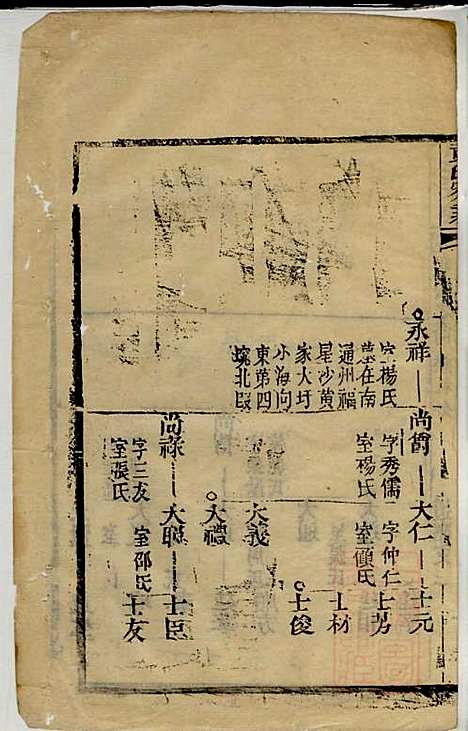 永祥
室楊氏
塟在南
通州福
星沙黄
家大圩
小海向
東第四
蜿北
尚爵
字秀儒
室楊氏
大仁
字仲仁
室傾氏
士元
士芳
士材
士俊
大義
大禮
尚祿
字三友
室張氏
大聰
室邵氏
士臣
士友